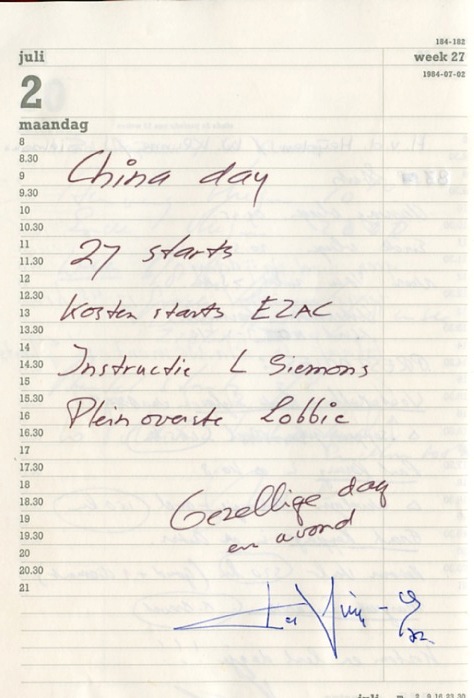 184-182
juli
week 27
2
1984-07-02
maandag
8
8.30
China day
9
9.30
10
10.30
11
27 starts
11.30
12
12.30
Kosten starts EZAC
13
13.30
14
14.30
Instructie L Siemons
15
15.30
Pleinoverste Lobbie
16
16.30
17
17.30
18
Gezellige day
18.30
19
en avond
19.30
20
20.30
21